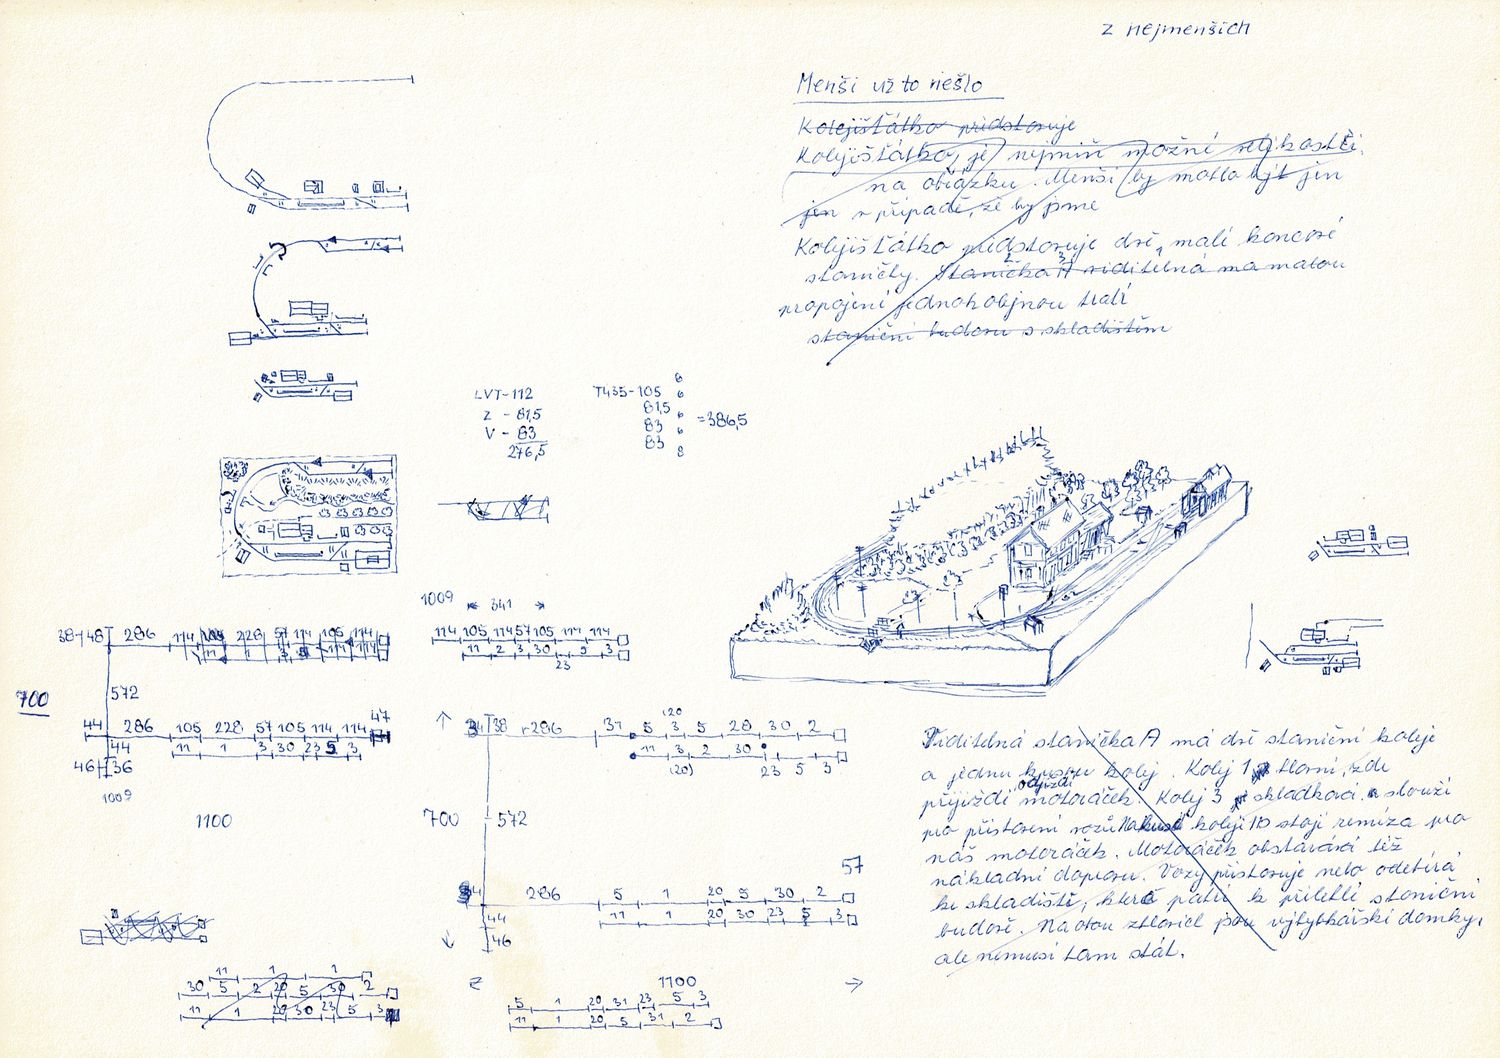 z nejmenších
Menší už to nešlo
Kolejišťátko představuje
Kolejišťátko, je nejmíň možné velikosti
na obrázku. Menší by mohlo být jen
jen v případě, že by jsme
Kolejišťátko představuje dvě malé koncové
staničky. Stanička A viditelná má malou
propojení jednoho trati
staniční budovu s skladištěm
LVT-112
Z - 81,5
V - 83
276,5
T435-105
81,5
83
83
6
6
6
6
8
=386,5
1009
341
38+48 286 114 104 228 57 114 105 114
11 1 3 5
114 105 114 57 105 114 114
11 2 3 30 5 3
23
700
572
44 286 105 228 57 105 114 114 47
11 1 3 30 23 5 3
44
46 36
1009
1100
34 38 r286 31 5 3 5 28 30 2
(20)
11 3 2 30 5 3
(20) 23
700 572
57
44 286 5 1 20 5 30 2
11 1 20 30 23 5 3
44
46
Z 1100
11 1 1
30 5 2 20 5 30 2
11 1 20 30 23 5 3
5 1 20 31 23 5 3
11 1 20 5 31 2
Viditelná stanička A má dvě staniční koleje
a jednu kusou kolej. Kolej 1 hlavní, zde
odjíždí
přijíždí motoráček. Kolej 3 skládková slouží
pro přistavení vozů. Na kusé koleji 1b stojí remíza pro
náš motoráček. Motoráček obstarává též
nákladní dopravu. Vozy přistavuje nebo odebírá
ke skladišti, které patří k přilehlé staniční
budově. Na zhlaví jsou výhybkářské domky,
ale nemusí tam stát.